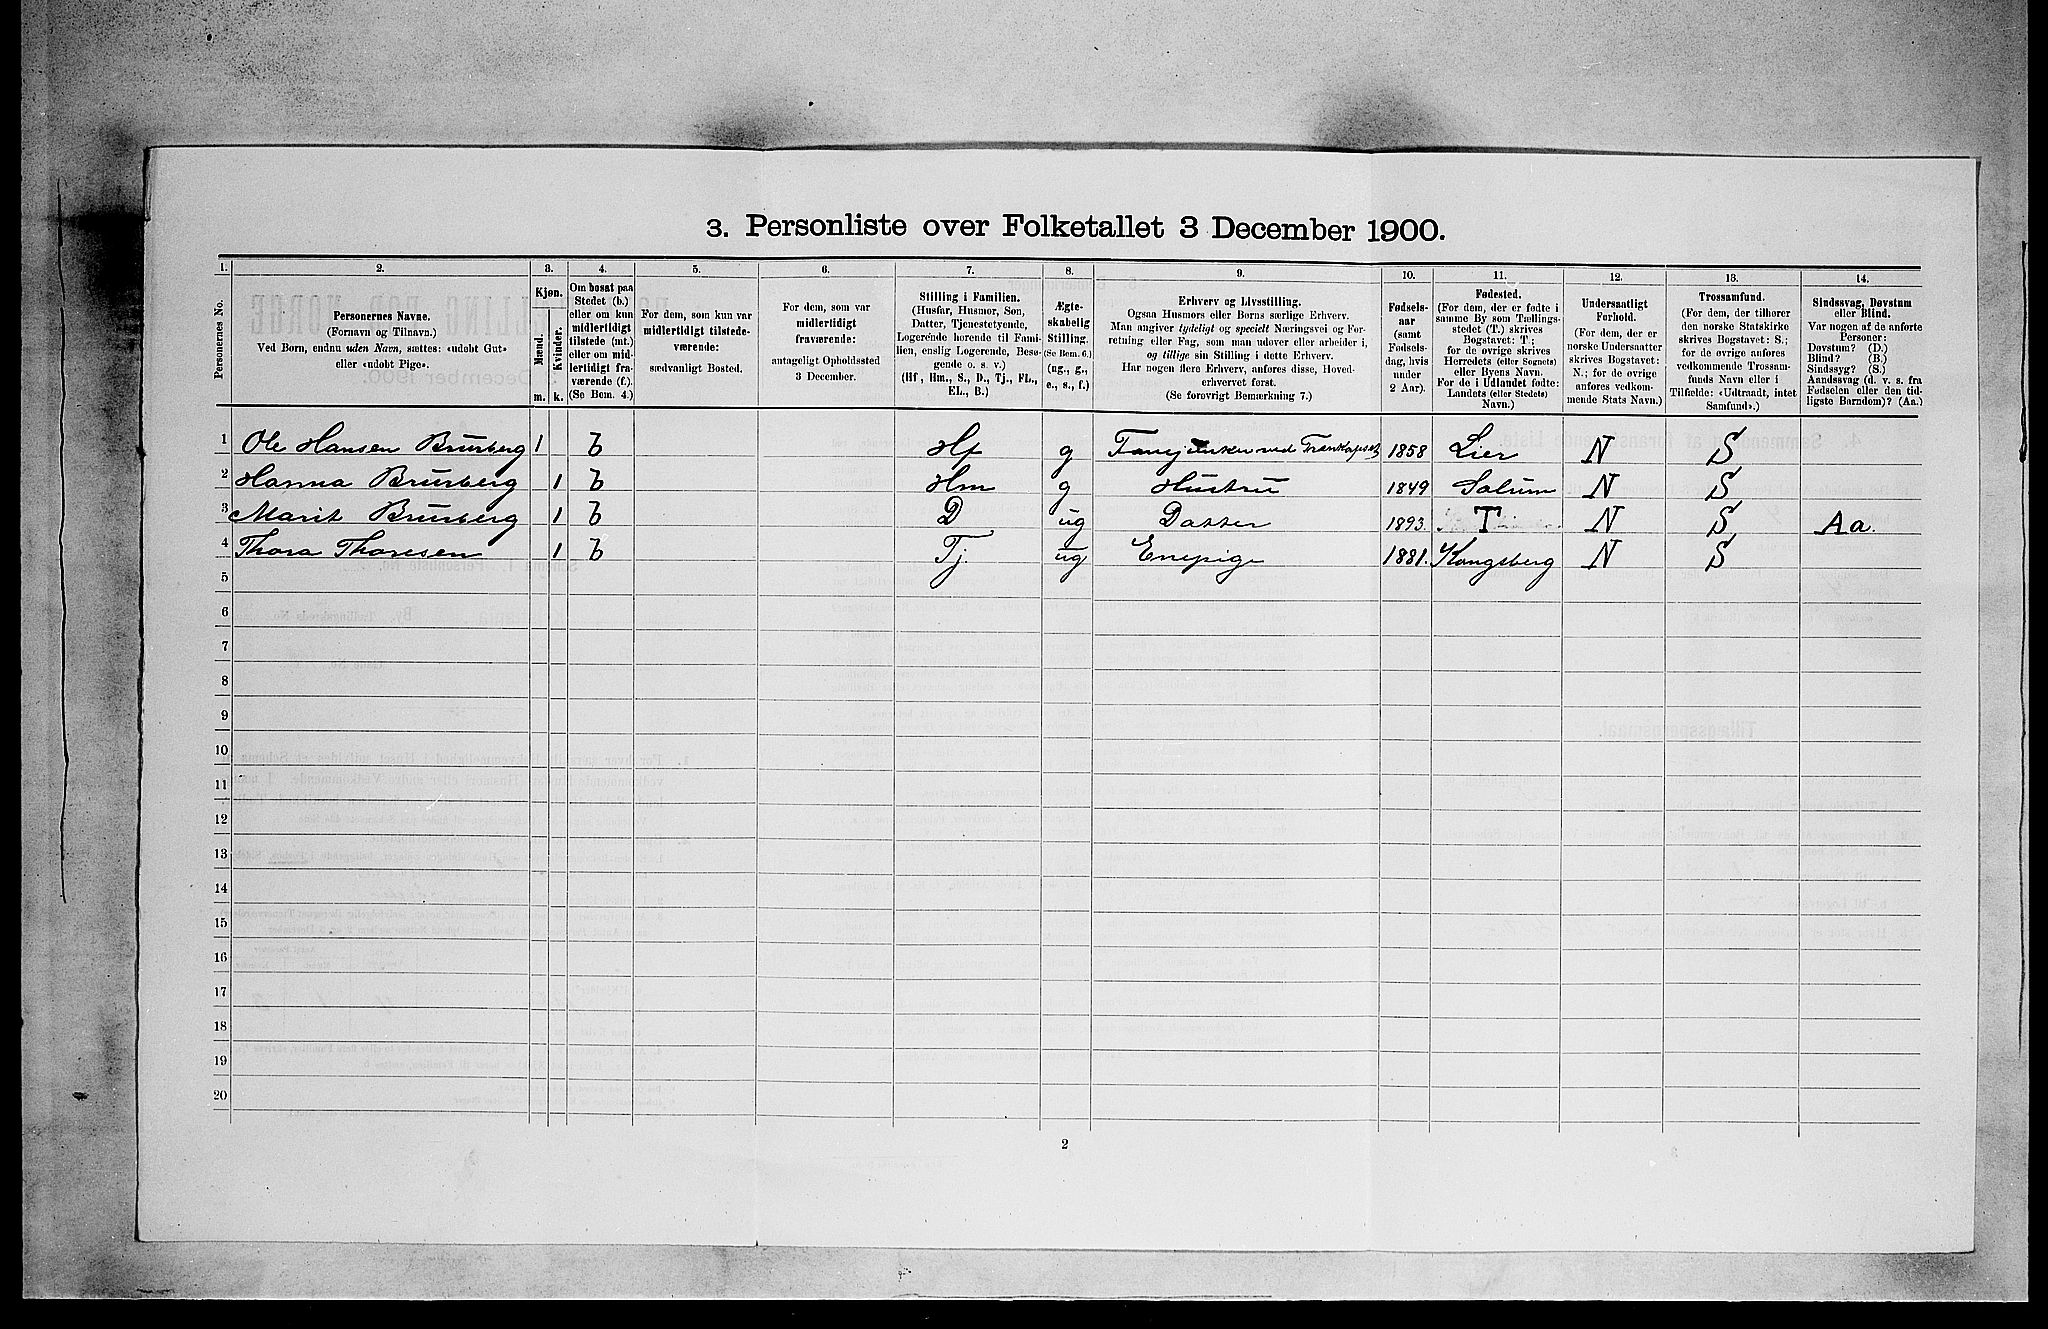 3. Personliste over Folketallet 3 December 1900.
1. 2. 3. 4. 5. 6. 7. 8. 9. 10. 11. 12. 13. 14.
Personernes No.
Personernes Navne.
(Fornavn og Tilnavn.)
Ved Børn, endnu uden Navn, sættes: «udøbt Gut»
eller «udøbt Pige».
Kjøn.
Mænd.
Kvinder.
m. k.
Om bosat paa
Stedet (b.)
eller om kun
midlertidigt
tilstede (mt.)
eller om mid-
lertidigt fra-
værende (f.).
(Se Bem. 4.)
For dem, som kun var
midlertidigt tilstede-
værende:
sædvanligt Bosted.
For dem, som var
midlertidigt
fraværende:
antageligt Opholdssted
3 December.
Stilling i Familien.
(Husfar, Husmor, Søn,
Datter, Tjenestetyende,
Logerende hørende til Fami-
lien, enslig Logerende, Besø-
gende o. s. v.)
(Hf, Hm., S., D., Tj., FL.,
EL., B.)
Ægte-
skabelig
Stilling.
(Se Bem. 6.)
(ug., g.,
e., s., f.)
Erhverv og Livsstilling.
Ogsaa Husmors eller Børns særlige Erhverv.
Man angiver tydeligt og specielt Næringsvei og For-
retning eller Fag, som man udøver eller arbeider i,
og tillige sin Stilling i dette Erhverv.
Har nogen flere Erhverv, anføres disse, Hoved-
erhvervet først.
(Se forøvrigt Bemærkning 7.)
Fødsels-
aar
(samt
Fødsels-
dag, hvis
under
2 Aar).
Fødested.
(For dem, der er fødte i
samme By som Tællings-
stedet (T.) skrives
Bogstavet: T;
for de øvrige skrives
Herredets (eller Sognets)
eller Byens Navn.
For de i Udlandet fødte:
Landets (eller Stedets)
Navn.)
Undersaatligt
Forhold.
(For dem, der er
norske Undersaatter
skrives Bogstavet:
N.; for de øvrige
anføres vedkom-
mende Stats Navn.)
Trossamfund.
(For dem, der tilhører
den norske Statskirke
skrives Bogstavet: S.;
for de øvrige anføres
vedkommende Trossam-
funds Navn eller i
Tilfælde: «Udtraadt, intet
Samfund».)
Sindssvag, Døvstum
eller Blind.
Var nogen af de anførte
Personer:
Døvstum? (D.)
Blind? (B.)
Sindssyg? (S.)
Aandssvag (d. v. s. fra
Fødselen eller den tid-
ligste Barndom)? (Aa.)
1 Ole Hansen Brurberg 1 b Hf g 1858 Lier N S
2 Hanna Brurberg 1 b Hm g Hustru 1849 Solum N S
3 Marit Brurberg 1 b D ug Datter 1893. T N S Aa.
4 Thora Thoresen 1 b Tj. ug Enepige 1881. Kongsberg N S
5
6
7
8
9
10
11
12
13
14
15
16
17
18
19
20
2